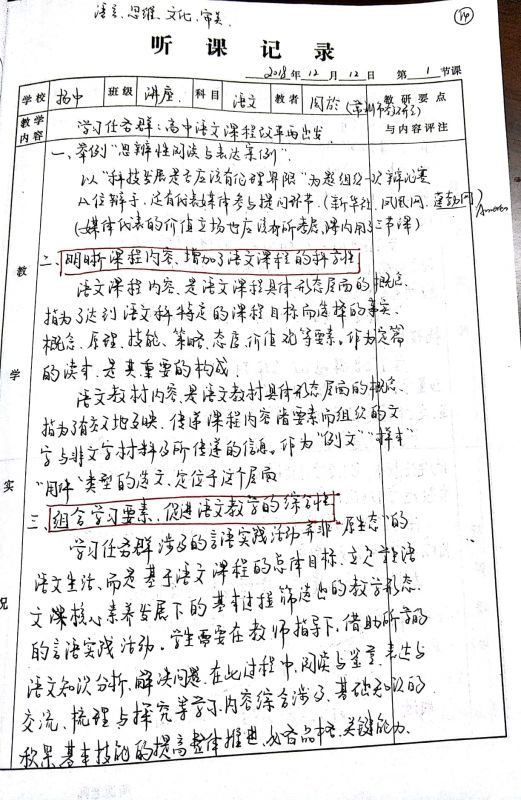 语言、思维、文化、审美
14
听课记录
2018年12月12日 第1节课
学校 扬中 班级 讲座 科目 语文 教者 教研要点
教学内容 学习任务群:高中语文课程改革再出发 与内容评注
一、举例“思辨性阅读与表达案例”.
以“科技发展是否应该有伦理界限”为题组织一次辩论赛
从位辩手,还有代表媒体参与提问环节.(新华社、凤凰网、
(媒体代表的价值立场也应该有所考虑,课内用了三节课)
二、明晰课程内容,增加了语文课程的科学性
语文课程内容,是语文课程具体形态层面的概念.
指为了达到语文科特定的课程目标而选择的事实、
概念、原理、技能、策略、态度、价值观等要素。作为定篇
的读本,是其重要的构成.
语文教材内容,是语文教材具体形态层面的概念.
指为了有效地反映、传递课程内容诸要素而组织的文
字与非文字材料及所传递的信息。作为“例文”“样本”
“用件”类型的选文,定位于这个层面
三、组合学习要素,促进语文教学的综合性
学习任务群涉及的言语实践活动并非“原生态”的
语文生活,而是基于语文课程的总体目标,立足于语
文课核心素养发展下的基本过程筛选出的教学形态
的言语实践活动。学生需要在教师指导下,借助所学的
语文知识分析、解决问题,在此过程中,阅读与鉴赏、表达与
交流、梳理与探究等学习内容综合涉及,基础知识的
积累、基本技能的提高整体推进,必备品格、关键能力
教
学
实
况